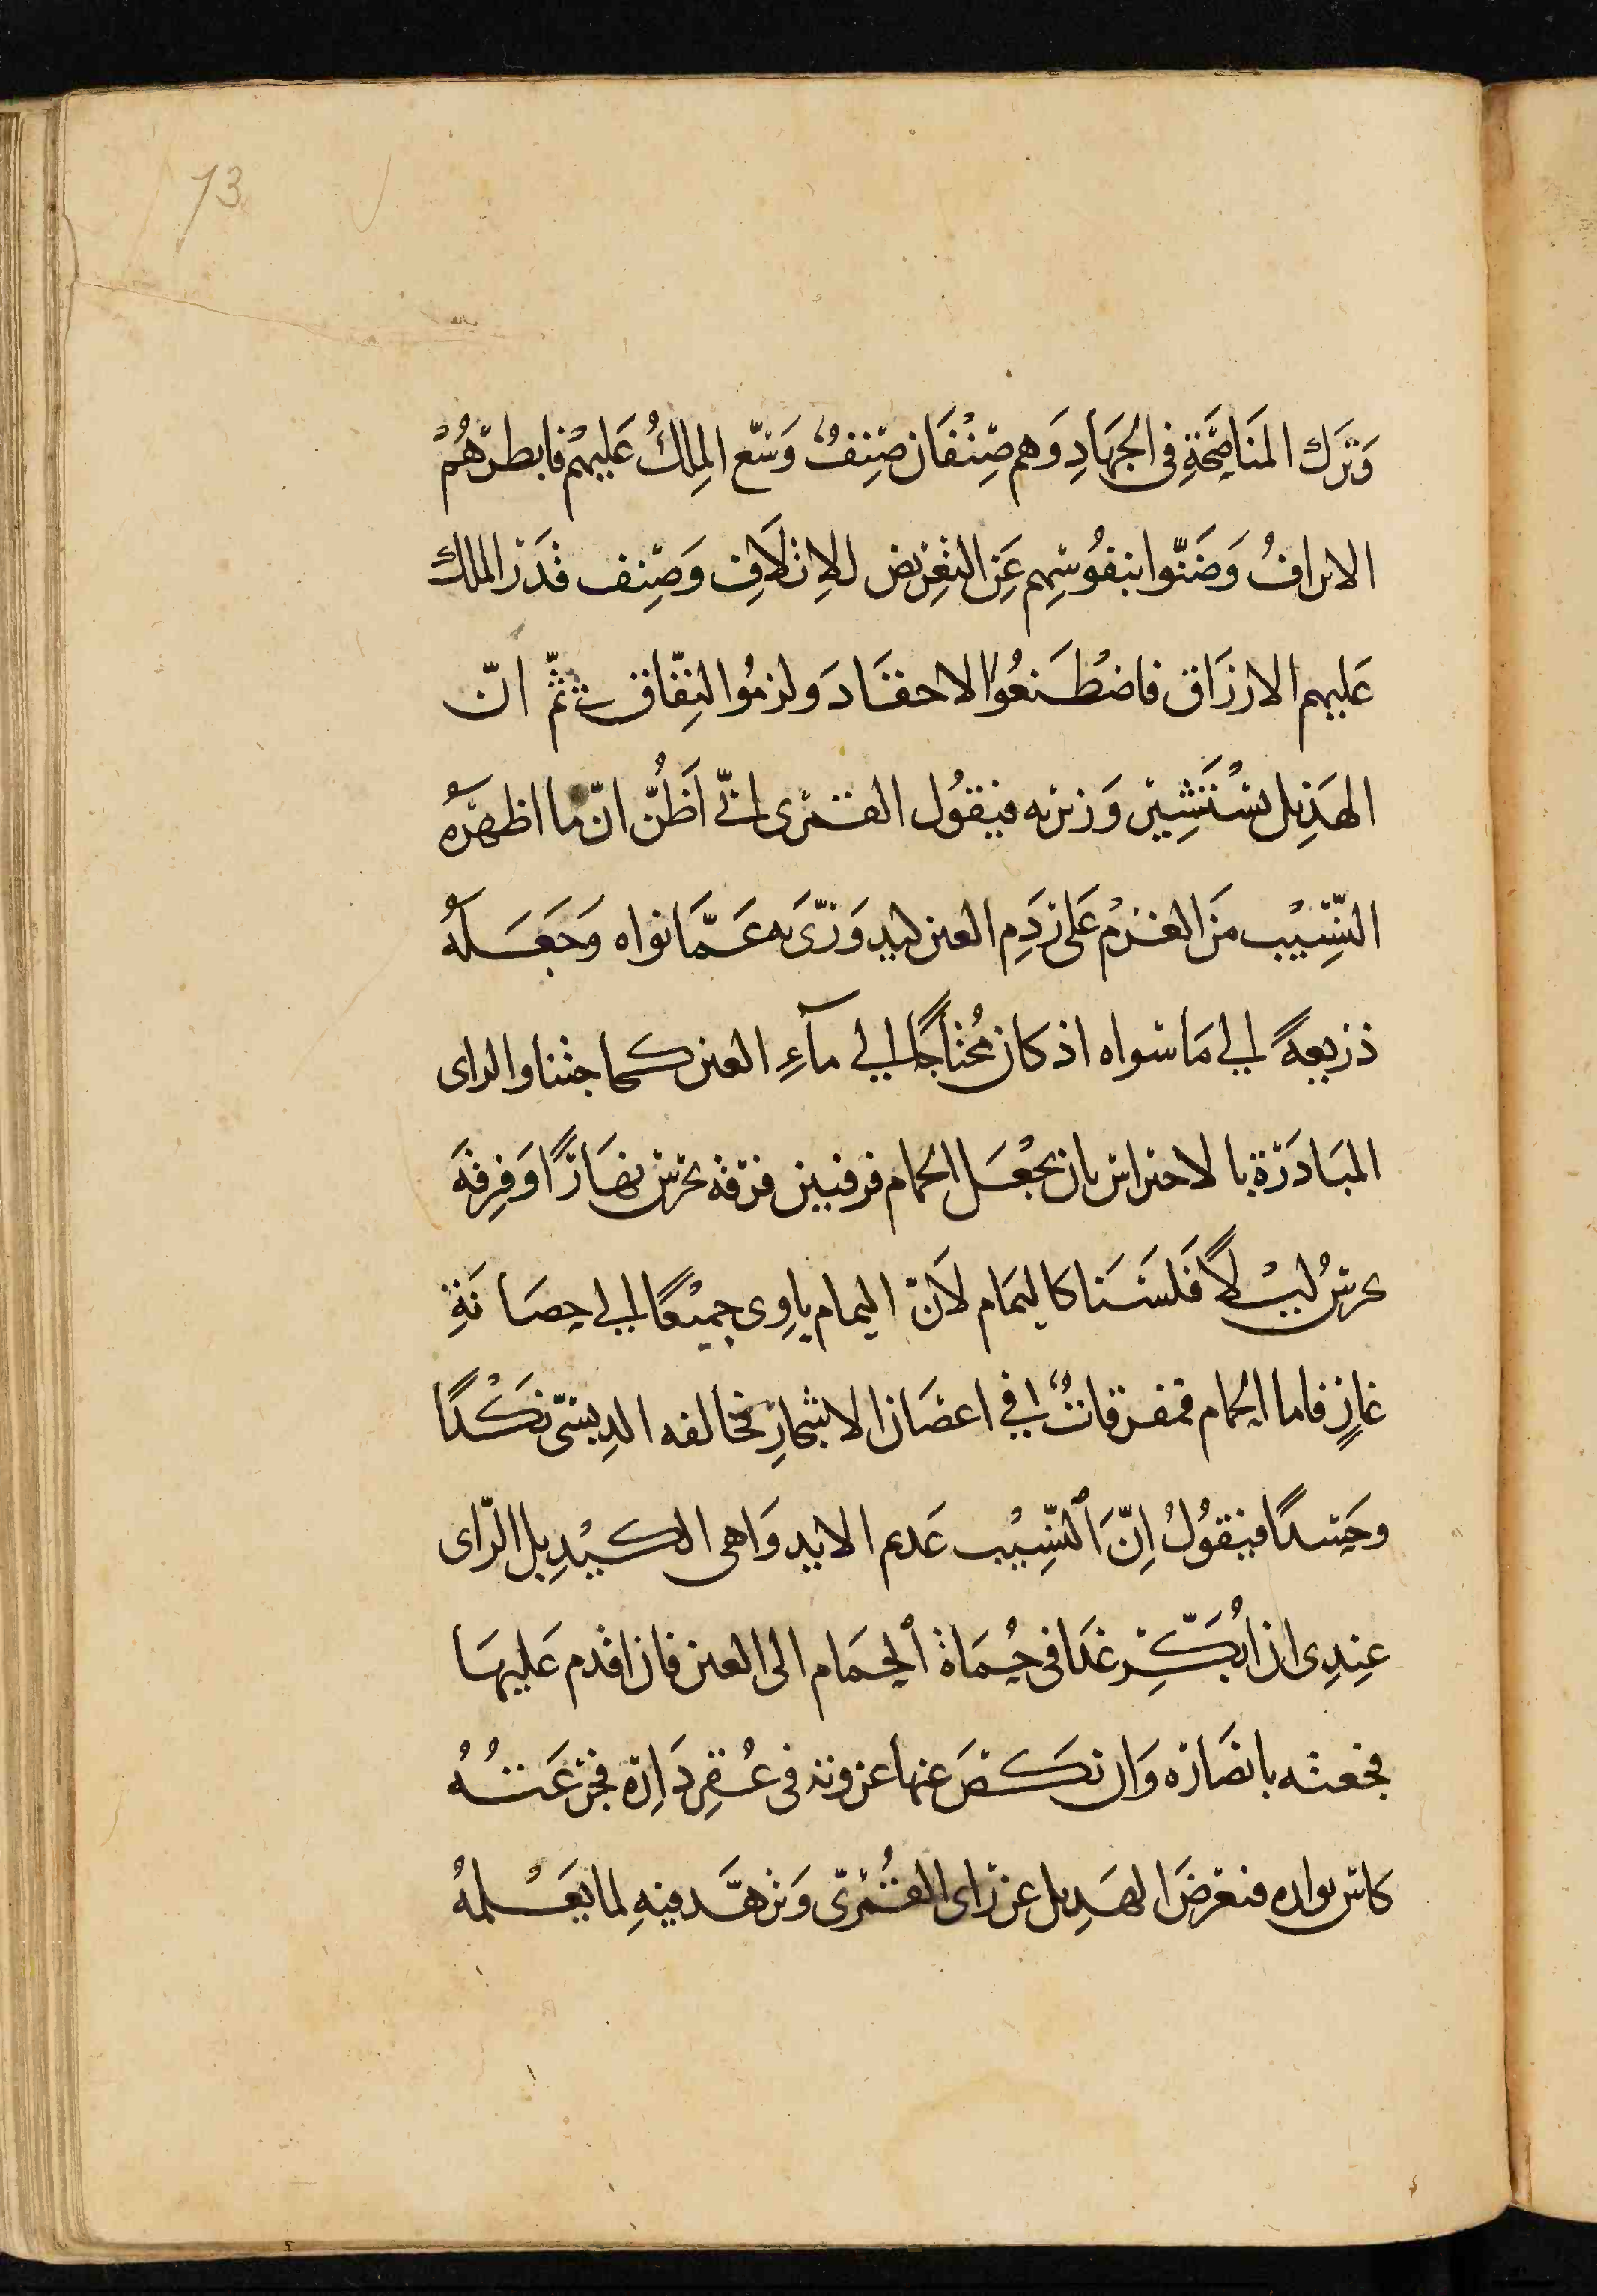 73
وَتَرك المنَاصَحَةِ فى الجهَادِ وَهم صِنْفَان صِنِفٌ وَسّع المِلكُ عَليهْم فابطرّهُمْ
الاتراف وَضَنّوا بنفُوسِهِم عَنِ التغرِيض للاِتلاَفِ وَصِنِف قدَر الملك
عَليهم الارزَاق فاضْطَنعُوا الاحقاد وَلزمُوا النِفّاق ثمّ انّ
الهَدِيل يسْتَشِير وَزيريه فيقُول القمرى انّى اَظُنّ انّ ما اظهرَهُ
النسِّيْب مَن العَزْم عَلى رَدِم العين ليد وَرّىَ به عَمَّا نواه وَجَعَلهُ
ذريعةً الي مَا سَواه اذ كان مُحْتاجًا الي مآءِ العين كما جئنا والراى
المبَادَرَة بالاحتراس بان يجْعَل الحمام فرقتين فرقة تحرس نهَارًا وَفِرِقة
تحرسُ ليْلاً فَلسَنا كاليمَام لاَنّ اليمام ياوِى جميْعًا الي حِصَانَةِ
غارٍ فاما الحمام فمفرقاتٌ في اغصَان الاشجارِ فخالفه الدِبسّى نكْدًا
وحَسدًا فيقُولُ اِنّ النسِّيْب عَدم الايد وَاهى الكيْدِ بل الرّاى
عِندِى ان اُبَكِّر غدًا فى حُمَاة الحمَام الى العين فان اقدم عَليهَا
فجعته بانصَاره وَان نكصَ عنها غزوته فى عُقرِ دَاِره فجرّعَتُهُ
كاس بواره فيعْرضَ الهَدِيل عن رَاى القُمْرىّ وَيزهَّد فيهِ لما يعْلمهُ